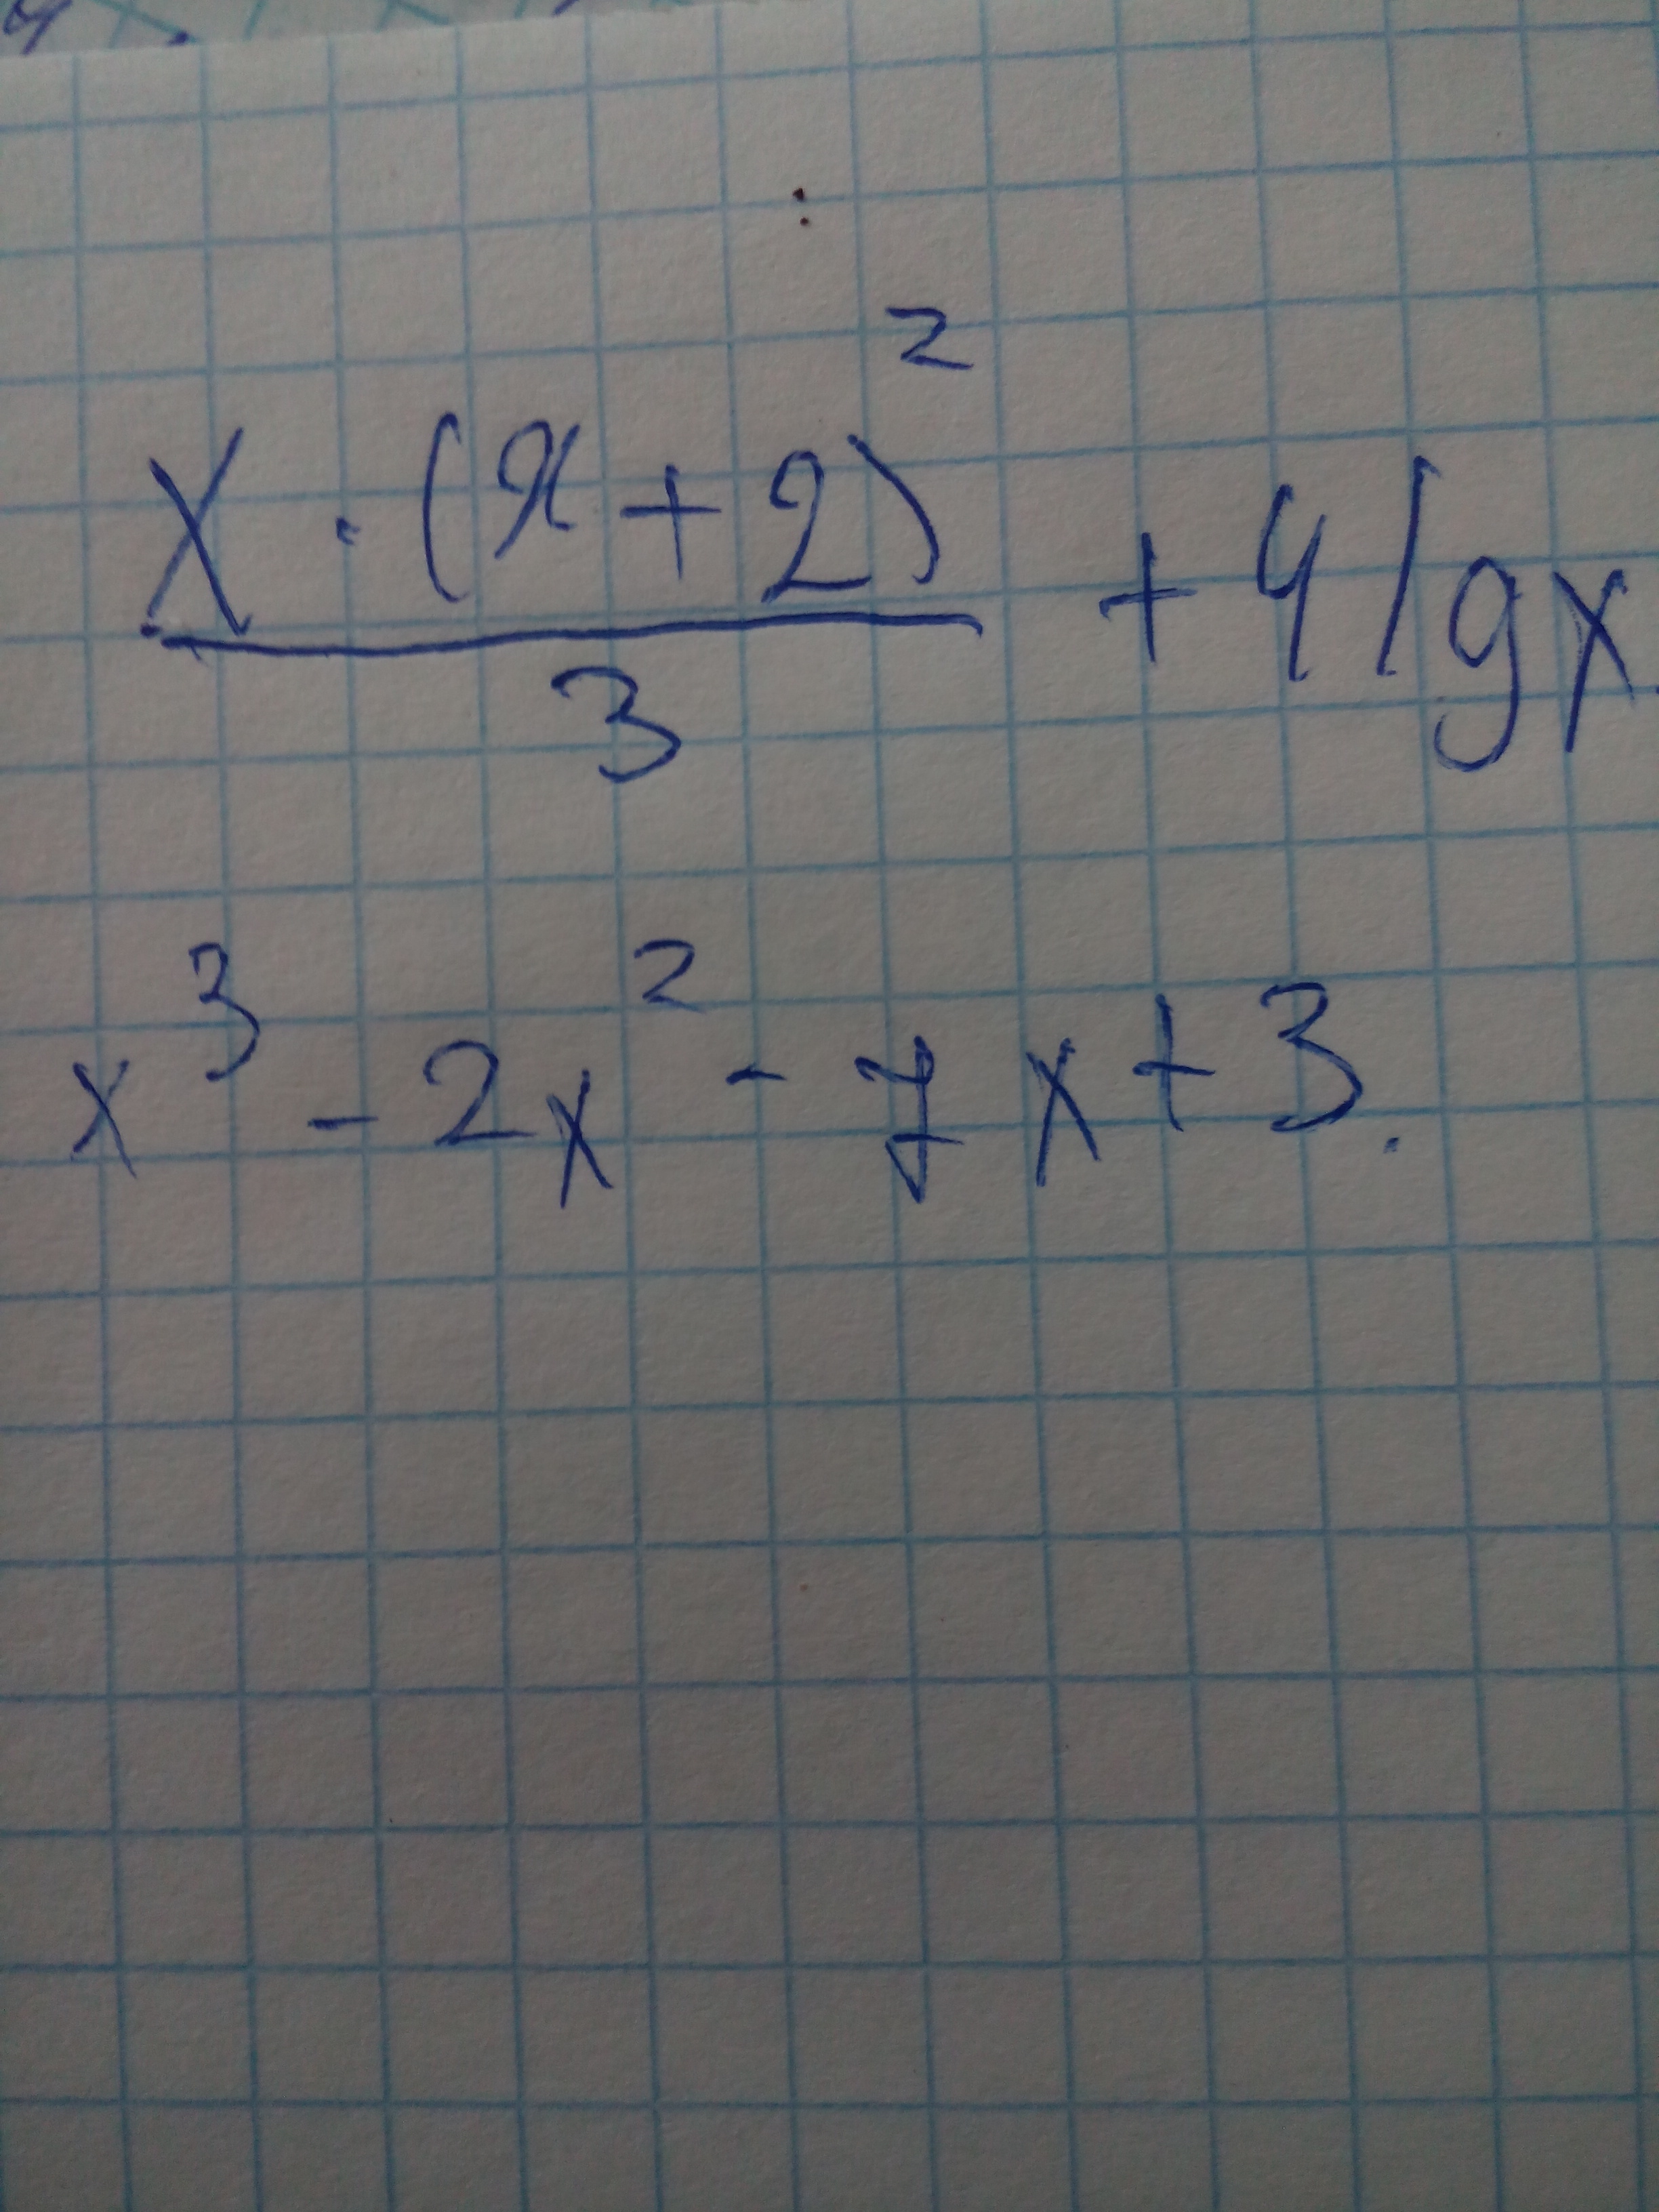 x · (x + 2)² / 3 + 4 lg x.
x³ - 2x² - 7x + 3.